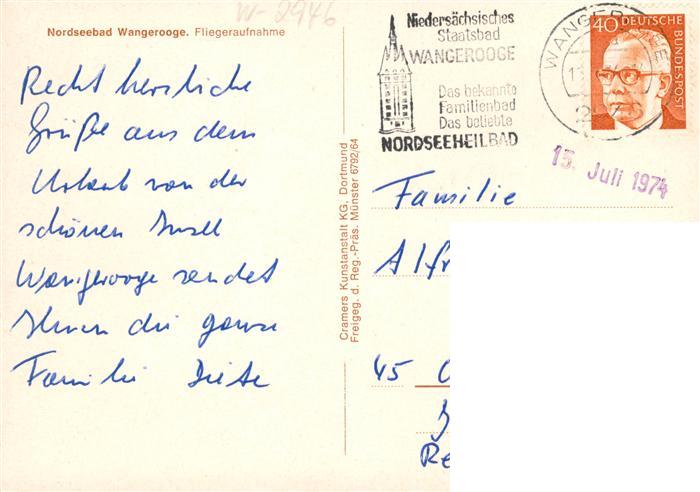 W-2946
Nordseebad Wangerooge. Fliegeraufnahme
Recht herzliche
Grüße aus dem
Urlaub von der
schönen Insel
Wangerooge sendet
Ihnen die ganze
Familie
Cramers Kunstanstalt KG, Dortmund
Freigeg. d. Reg.-Präs. Münster 6792/64
Niedersächsisches
Staatsbad
WANGEROOGE
Das bekannte
Familienbad
Das beliebte
NORDSEEHEILBAD
WANGEROOGE
40 DEUTSCHE
BUNDESPOST
15. Juli 1974
Familie
Alfr
45
Re